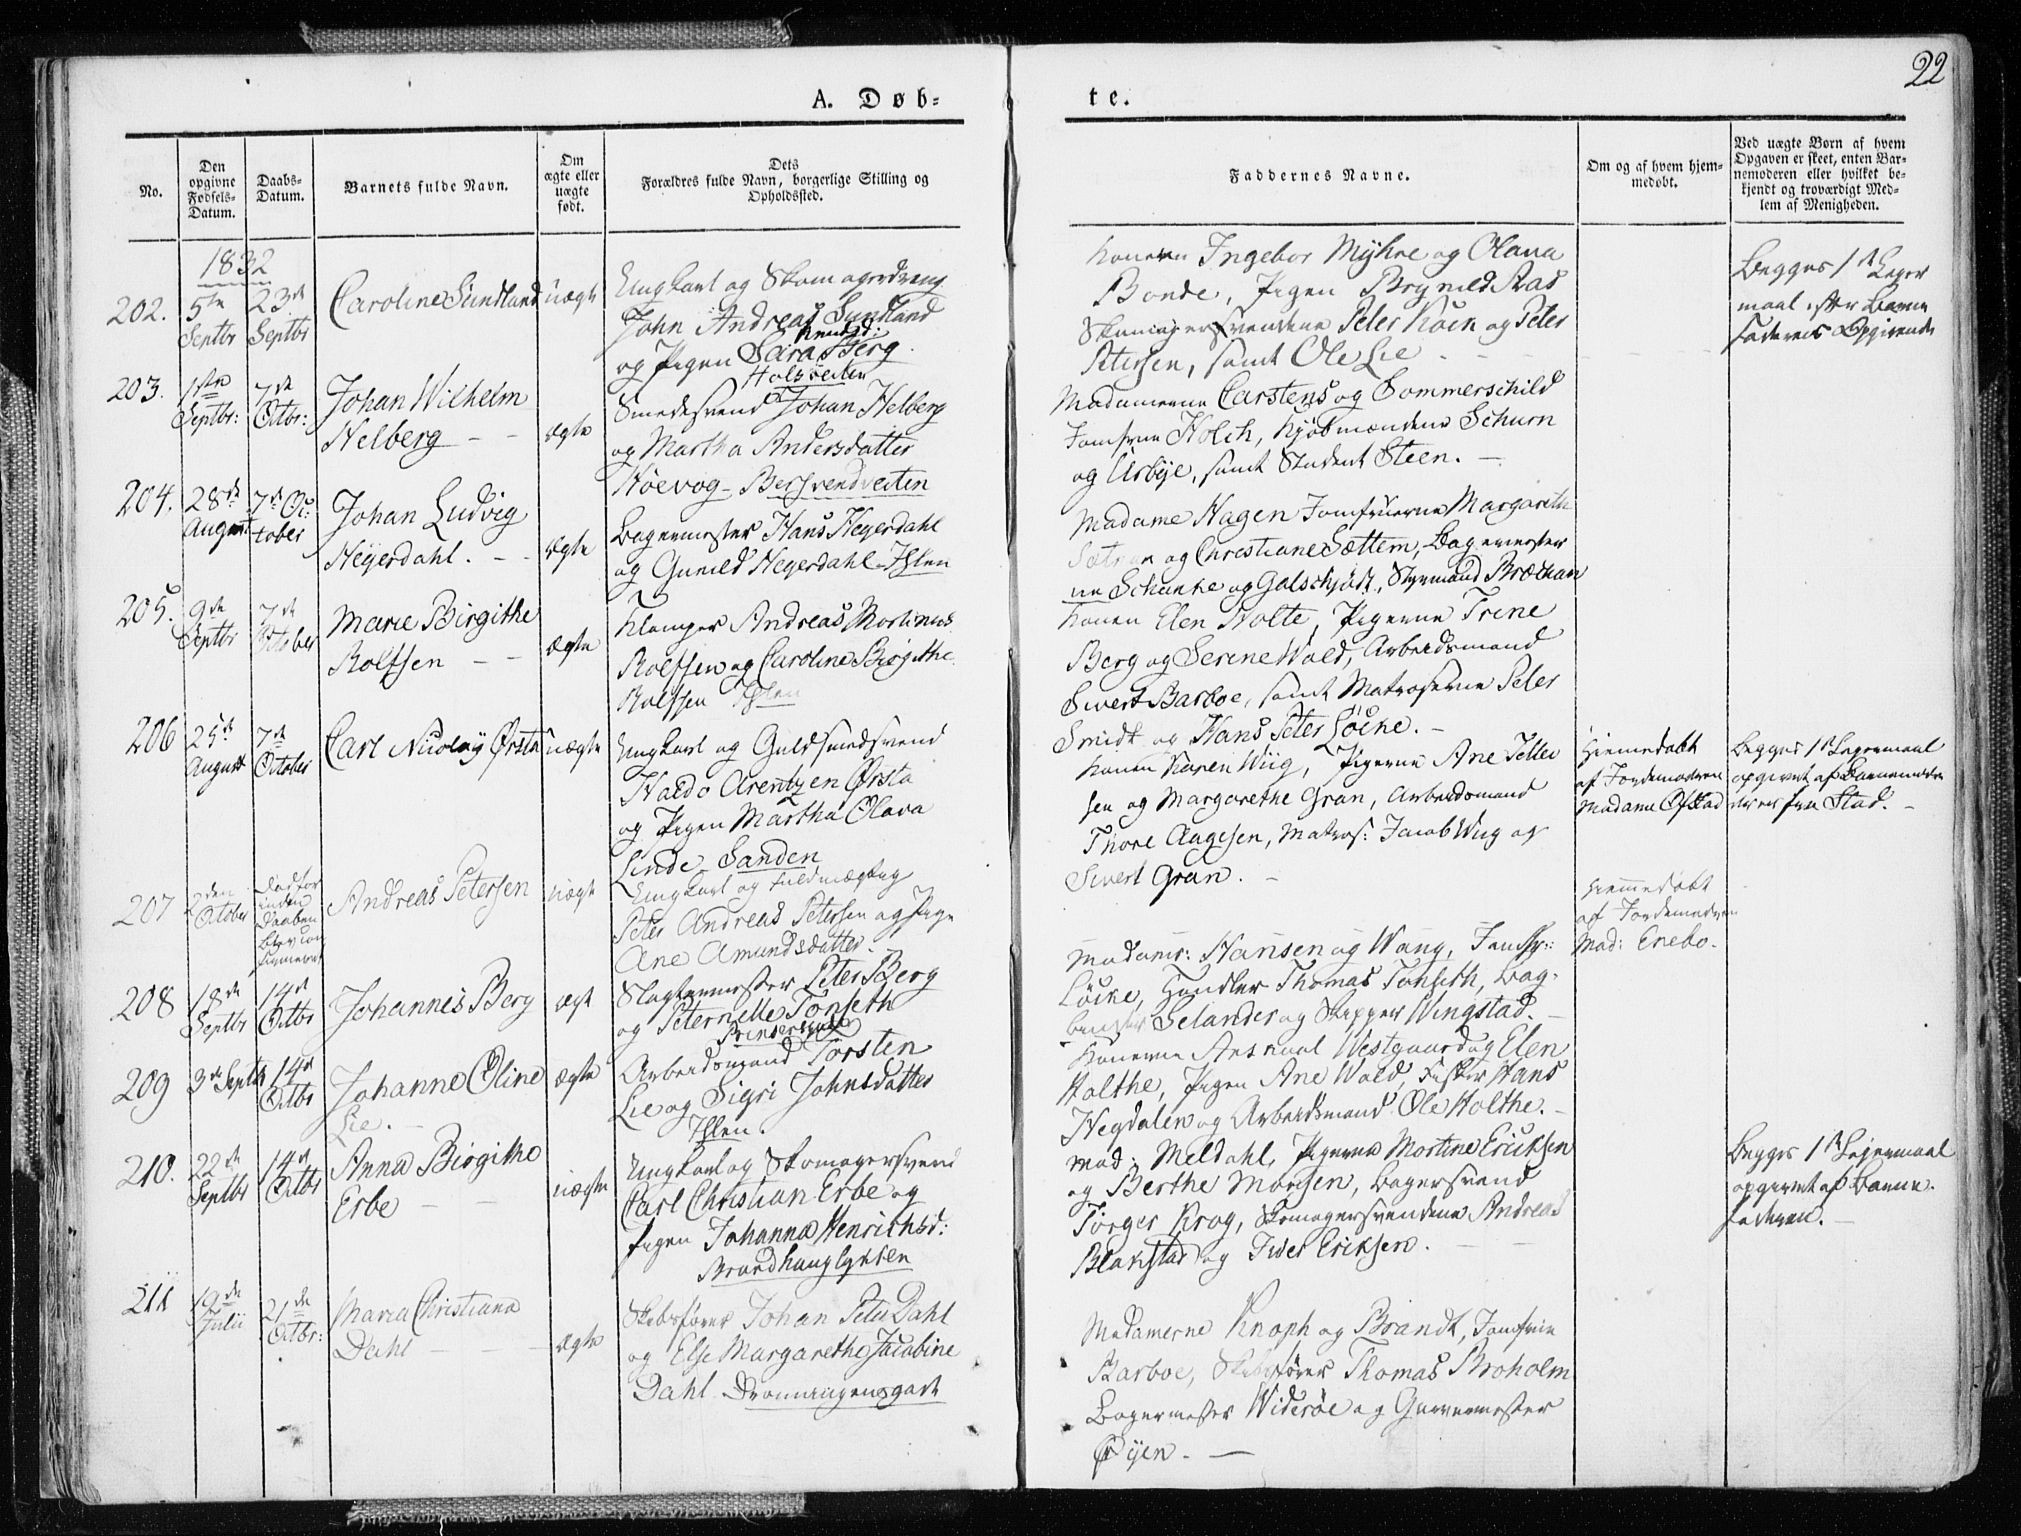 22
A. Døb-
te.
No.
Den opgivne Fødsels-Datum.
Daabs-Datum.
Barnets fulde Navn.
Om ægte eller uægte født.
Dets Forældres fulde Navn, borgerlige Stilling og Opholdssted.
Faddernes Navne.
Om og af hvem hjem-medøbt.
Ved uægte Børn af hvem Opgaven er skeet, enten Bar-nemoderen eller hvilket be-kjendt og troværdigt Med-lem af Menigheden.
1832
202.
5te Septbr
23de Septbr
Caroline Sundland
uægte
Ungkarl og Skomagerdreng
John Andreas Sundland
og Pigen Sara Knudsd: Berg.
Holsveiten
Konerne Ingebor Myhre og Olava
Bonde, Pigen Brynild Aas
Skomagersvendene Peter Koch og Peter
Petersen, samt Ole Lie
Begges 1ste Leger
maal efter Barne
faderens Opgivende
203.
1ste Septbr:
7de Octbr:
Johan Wilhelm
Helberg
ægte
Smedesvend Johan Helberg
og Martha Andersdatter
Høevog - Bersvendveiten
Madamerne Carstens og Sommerschild
Jomfrue Holch, Kjøbmændene Schurn
og Usbye, samt Student Steen.
204.
28de August
7de October
Johan Ludvig
Heyerdahl.
ægte
Bagermester Hans Heyerdahl
og Gunild Heyerdahl - Ihlen
Madame Hagen Jomfruerne Margareth
og Christiane Sættem, Bagermester
ne Schanke og Galschjødt, Styrmand Brøthan
205.
9de Septbr
7de October
Marie Birgithe
Rolfsen
ægte
Klemper Andreas Mortinus
Rolfsen og Caroline Birgithe
Rolfsen Ihlen
Konen Elen Holte, Pigerne Trine
Berg og Serine Wold, Arbeidsmand
Sivert Barboe, samt Matroserne Peter
Smidt og Hans Peter Løcke.
206
25de August
7de October
Carl Nicolay Ørsta
uægte
Ungkarl og Guldsmedsvend
Haldo Arentzen Ørsta
og Pigen Martha Olava
Linde - Sanden
Konen Karen Wiig, Pigerne Ane Teller
sen og Margarethe Gran, Arbeidsmand
Thore Aagesen, Matros: Jacob Wiig og
Sivert Gran.
Hiemedøbt
af Jordemoderen
Madame Ofstad
Begges 1ste Legermaal
opgivet af Barnemode
der er fra Stad.
207
2den October
Død for
inden
Daaben
blev con
firmeret
Andreas Petersen
uægte
Ungkarl og Fuldmægtig
Peter Andreas Petersen og Pige
Ane Amundsdatter.
Hiemmedøbt
af Jordemoderen
Mad: Enebo.
208
18de Septbr
14de Octbr
Johannes Berg
ægte
Slagtermester Peter Berg
og Peternelle Tonseth
Prindsensgade
Madame: Hansen og Wang, Jomfr::
Løcke, Handler Thomas Tonseth, Bog-
binder Selander og Skipper Wingstad.
209
3de Septbr
14de Octbr
Johanne Oline
Lie.
ægte
Arbeidsmand Torsten
Lie og Sigri Johnsdatter
Ihlen.
Konerne Westgaard og Elen
Holthe, Pigen Ane Wold, Fisker Hans
Hegdalen og Arbeidsmand Ole Holthe.
210.
22de Septbr
14de Octbr
Anna Birgithe
Erbe
uægte
Ungkarl og Skomagersvend
Carl Christian Erbe og
Pigen Johanna Henrichsd:
Brandhauglykken
Mad: Meldahl, Pigerne Mortine Ericksen
og Berthe Monsen, Bagersvend
Torger Krog, Skomagersvendene Andreas
Blakstad og Peder Eriksen.
Begges 1ste Legermaal
opgivet af Barne-
faderen.
211
19de Julii
21de Octbr:
Maria Christiana
Dahl
ægte
Skibsfører Johan Peter Dahl
og Else Margarethe Jacobine
Dahl Dronningensgade
Madamerne Knoph og Brandt, Jomfrue
Barboe, Skibsfører Thomas Broholm
Bagermester Widerøe og Garvermester
Øyen.